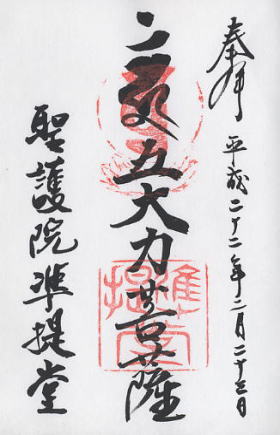 奉拝 平成二十二年二月二十三日
五大力菩薩
聖護院準提堂
準提堂